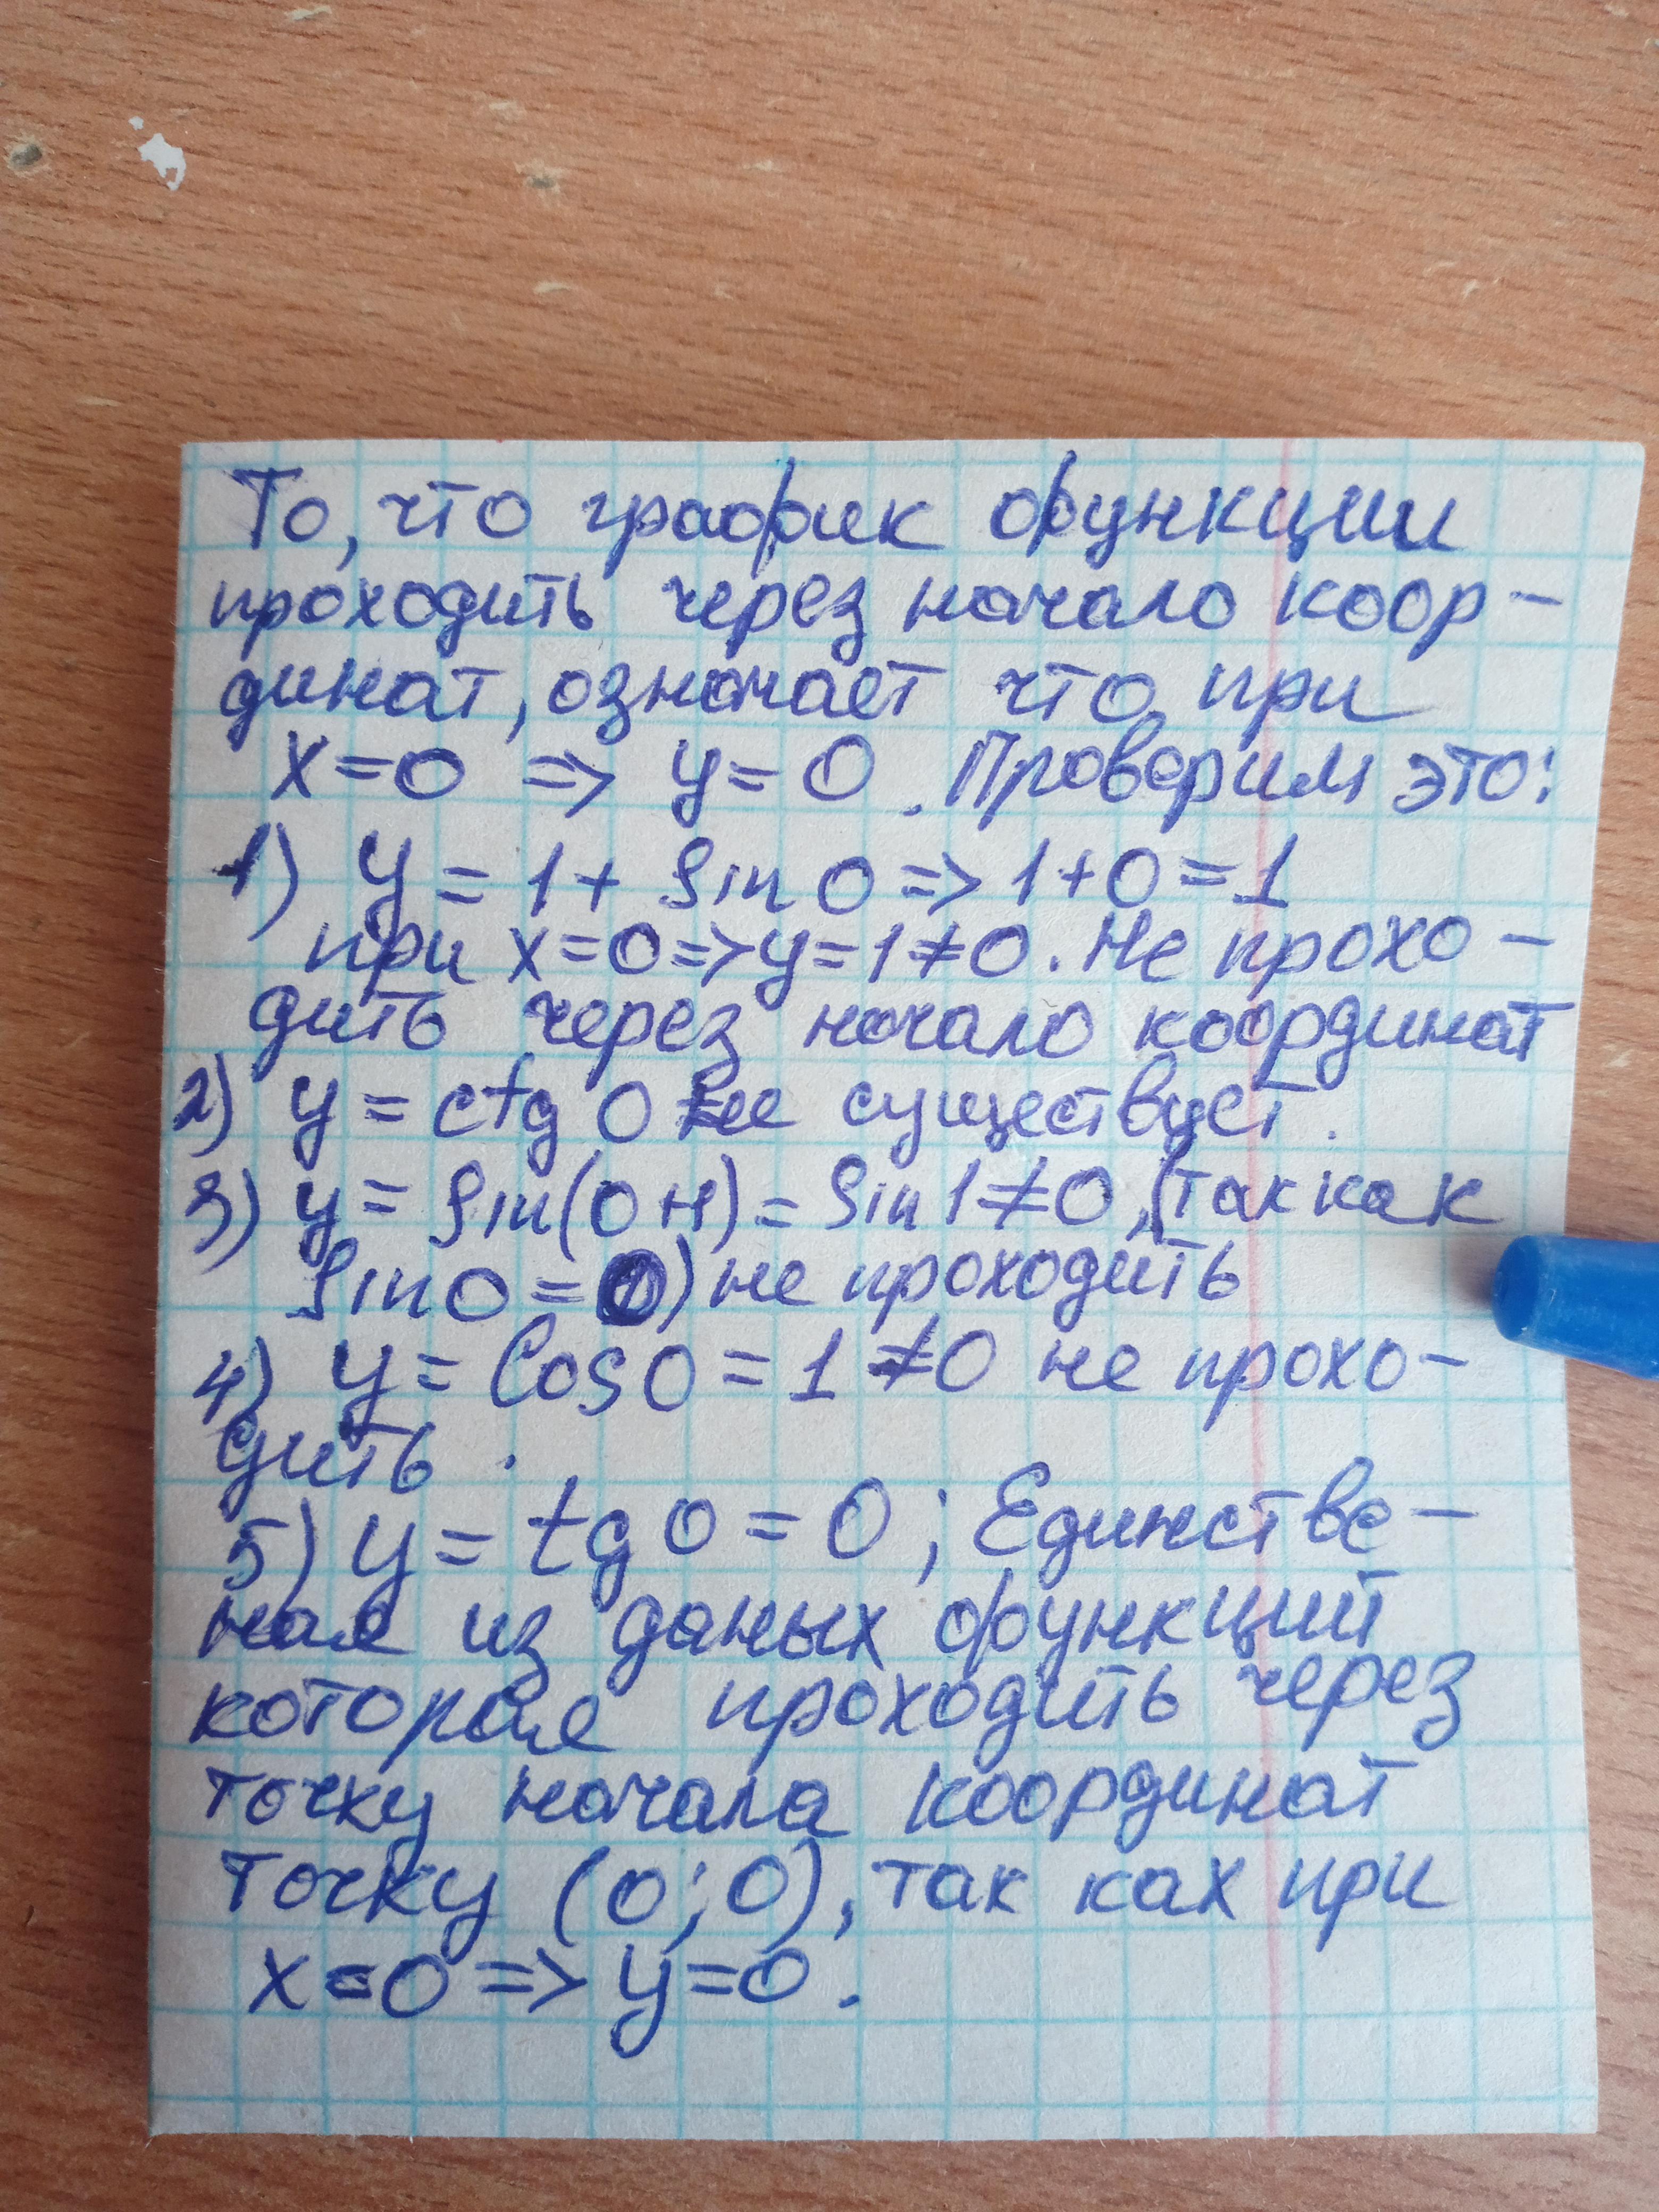 То, что график функции
проходить через начало коор-
динат, означает что при
x=0 => y=0. Проверим это:
1) y = 1 + sin 0 => 1+0=1
при x=0=>y=1≠0. Не прохо-
дить через начало координат
2) y = ctg 0 не существует.
3) y = sin(0+1) = sin 1≠0, (так как
sin 0 = 0) не проходить
4) y = cos 0 = 1 ≠0 не прохо-
дить.
5) y = tg 0 = 0; Единстве-
ная из даных функций
которая проходить через
точку начала координат
точку (0; 0), так ках при
x=0 => y=0.